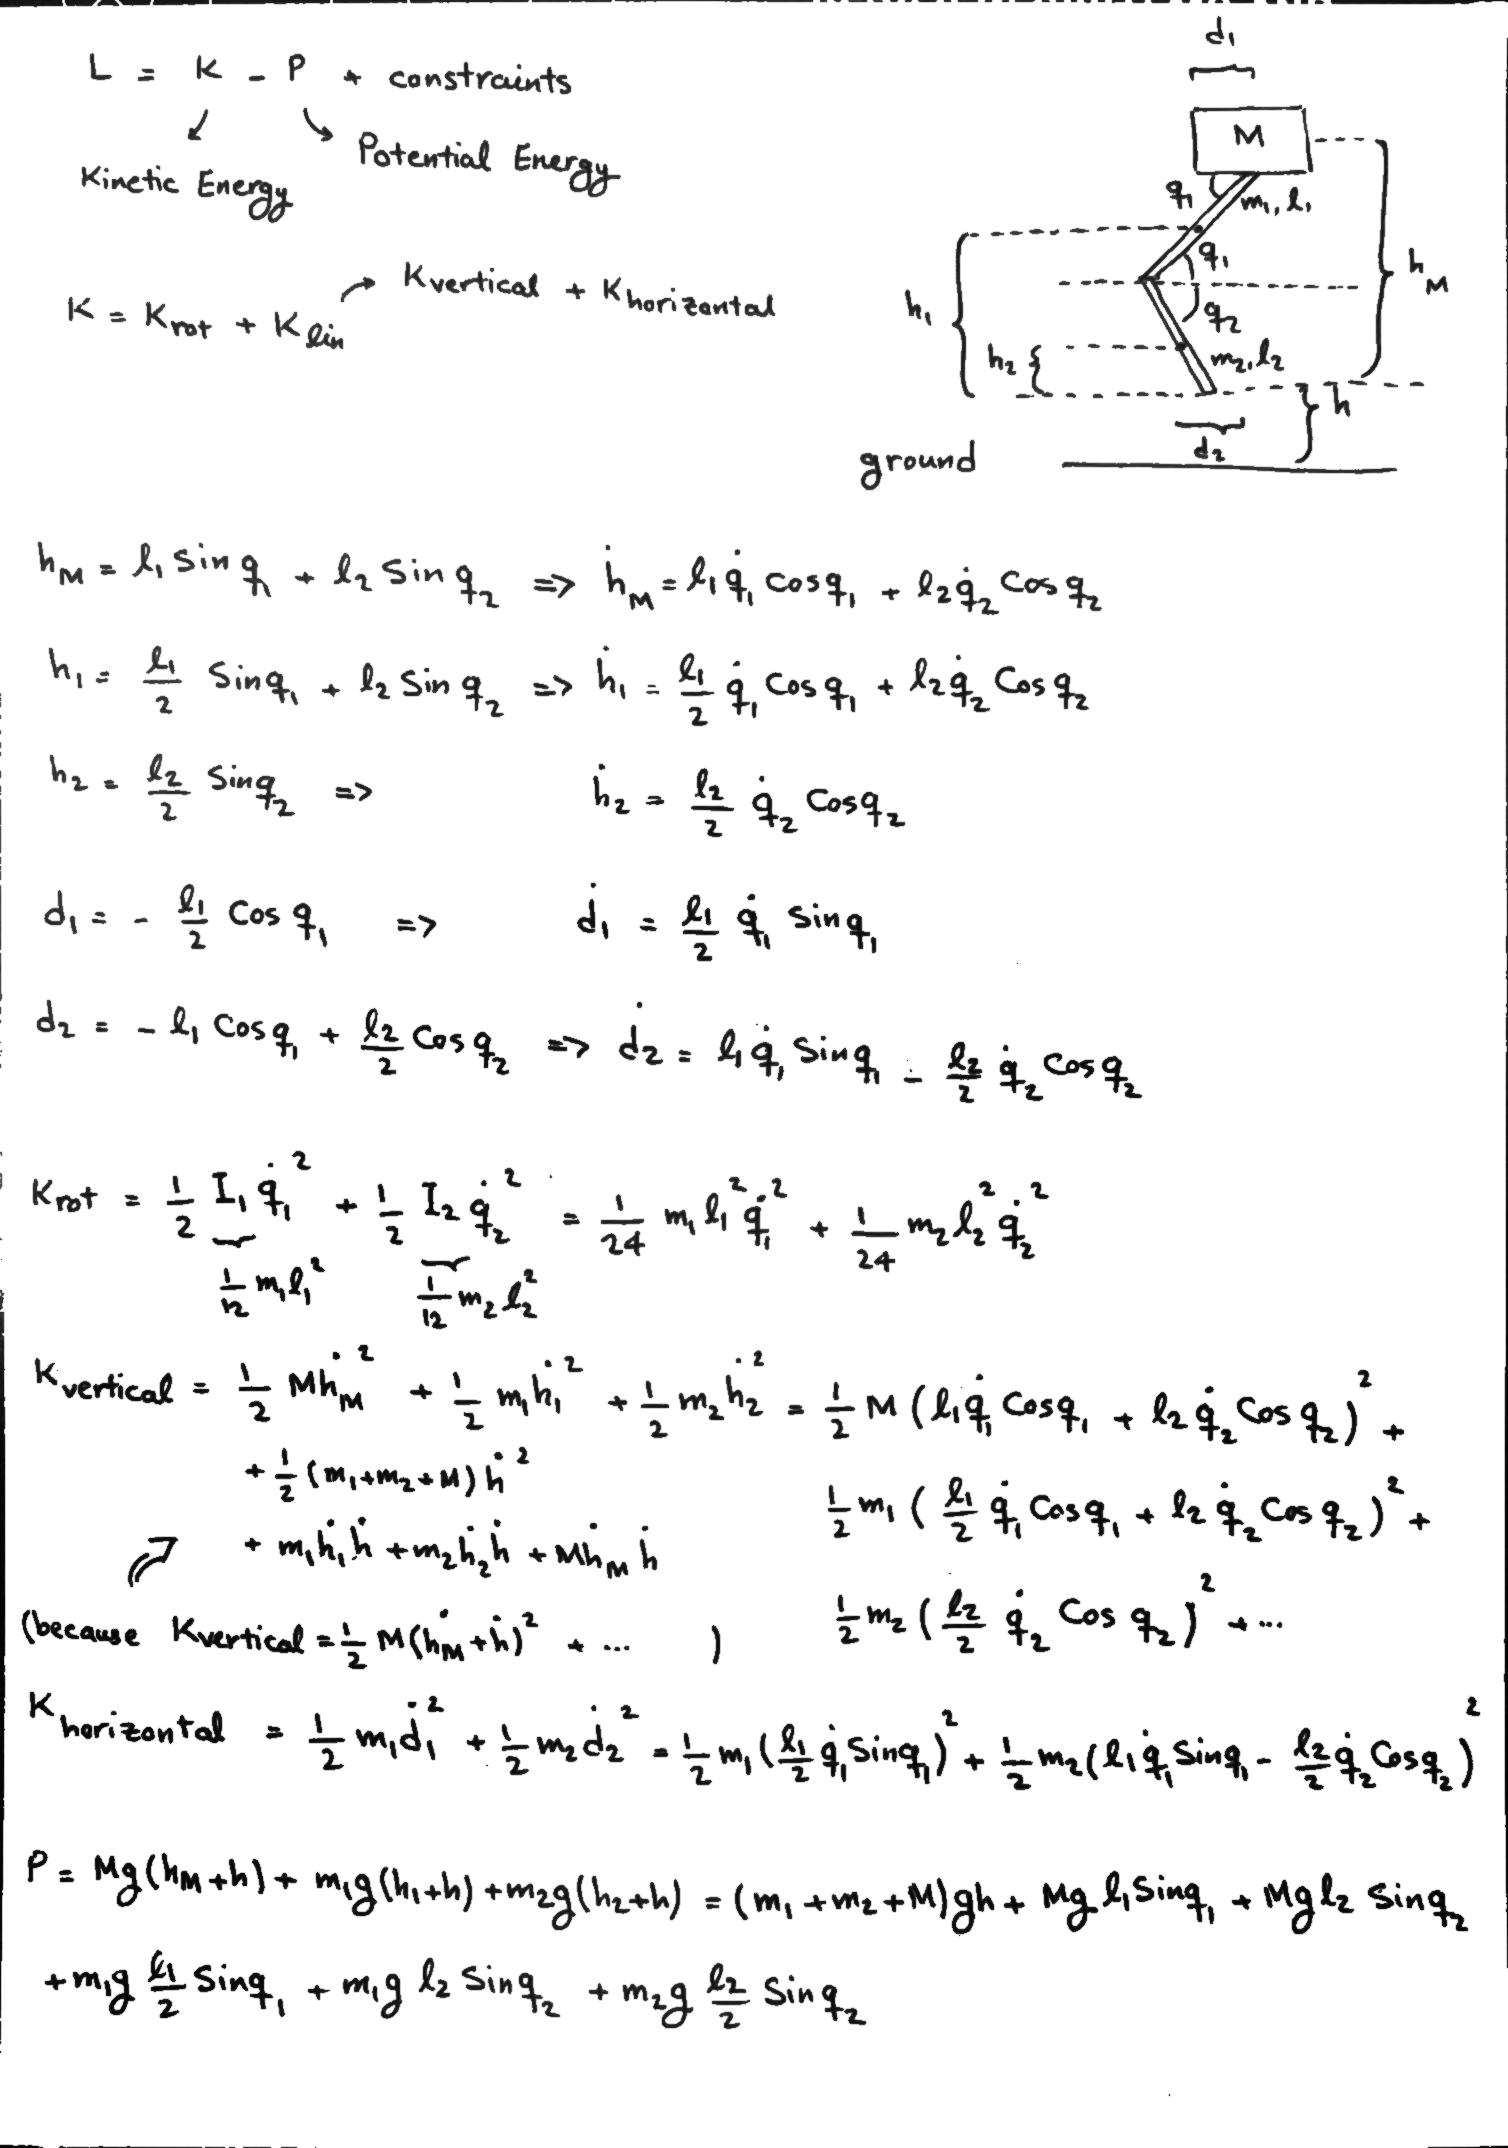 L = K - P + constraints
Kinetic Energy
Potential Energy
K = K_rot + K_lin
K_vertical + K_horizontal
d₁
M
q₁ m₁, l₁
q₁
h_M
h₁
q₂
h₂ { m₂, l₂
h
d₂
ground
h_M = l₁ Sin q₁ + l₂ Sin q₂ => ḣ_M = l₁ q̇₁ cos q₁ + l₂ q̇₂ Cos q₂
h₁ = l₁/2 Sin q₁ + l₂ Sin q₂ => ḣ₁ = l₁/2 q̇₁ Cos q₁ + l₂ q̇₂ Cos q₂
h₂ = l₂/2 Sin q₂ => ḣ₂ = l₂/2 q̇₂ Cos q₂
d₁ = - l₁/2 Cos q₁ => ḋ₁ = l₁/2 q̇₁ Sin q₁
d₂ = - l₁ Cos q₁ + l₂/2 Cos q₂ => ḋ₂ = l₁ q̇₁ Sin q₁ - l₂/2 q̇₂ Cos q₂
K_rot = 1/2 I₁ q̇₁² + 1/2 I₂ q̇₂² = 1/24 m₁ l₁² q̇₁² + 1/24 m₂ l₂² q̇₂²
1/12 m₁ l₁² 1/12 m₂ l₂²
K_vertical = 1/2 M ḣ_M² + 1/2 m₁ ḣ₁² + 1/2 m₂ ḣ₂² = 1/2 M (l₁ q̇₁ Cos q₁ + l₂ q̇₂ Cos q₂)² +
+ 1/2 (m₁ + m₂ + M) ḣ²
1/2 m₁ (l₁/2 q̇₁ Cos q₁ + l₂ q̇₂ Cos q₂)² +
+ m₁ ḣ₁ ḣ + m₂ ḣ₂ ḣ + M ḣ_M ḣ
1/2 m₂ (l₂/2 q̇₂ Cos q₂)² + ...
(because K_vertical = 1/2 M (ḣ_M + ḣ)² + ... )
K_horizontal = 1/2 m₁ ḋ₁² + 1/2 m₂ ḋ₂² = 1/2 m₁ (l₁/2 q̇₁ Sin q₁)² + 1/2 m₂ (l₁ q̇₁ Sin q₁ - l₂/2 q̇₂ Cos q₂)²
P = Mg(h_M + h) + m₁g(h₁ + h) + m₂g(h₂ + h) = (m₁ + m₂ + M)gh + Mg l₁ Sin q₁ + Mg l₂ Sin q₂
+ m₁g l₁/2 Sin q₁ + m₁g l₂ Sin q₂ + m₂g l₂/2 Sin q₂